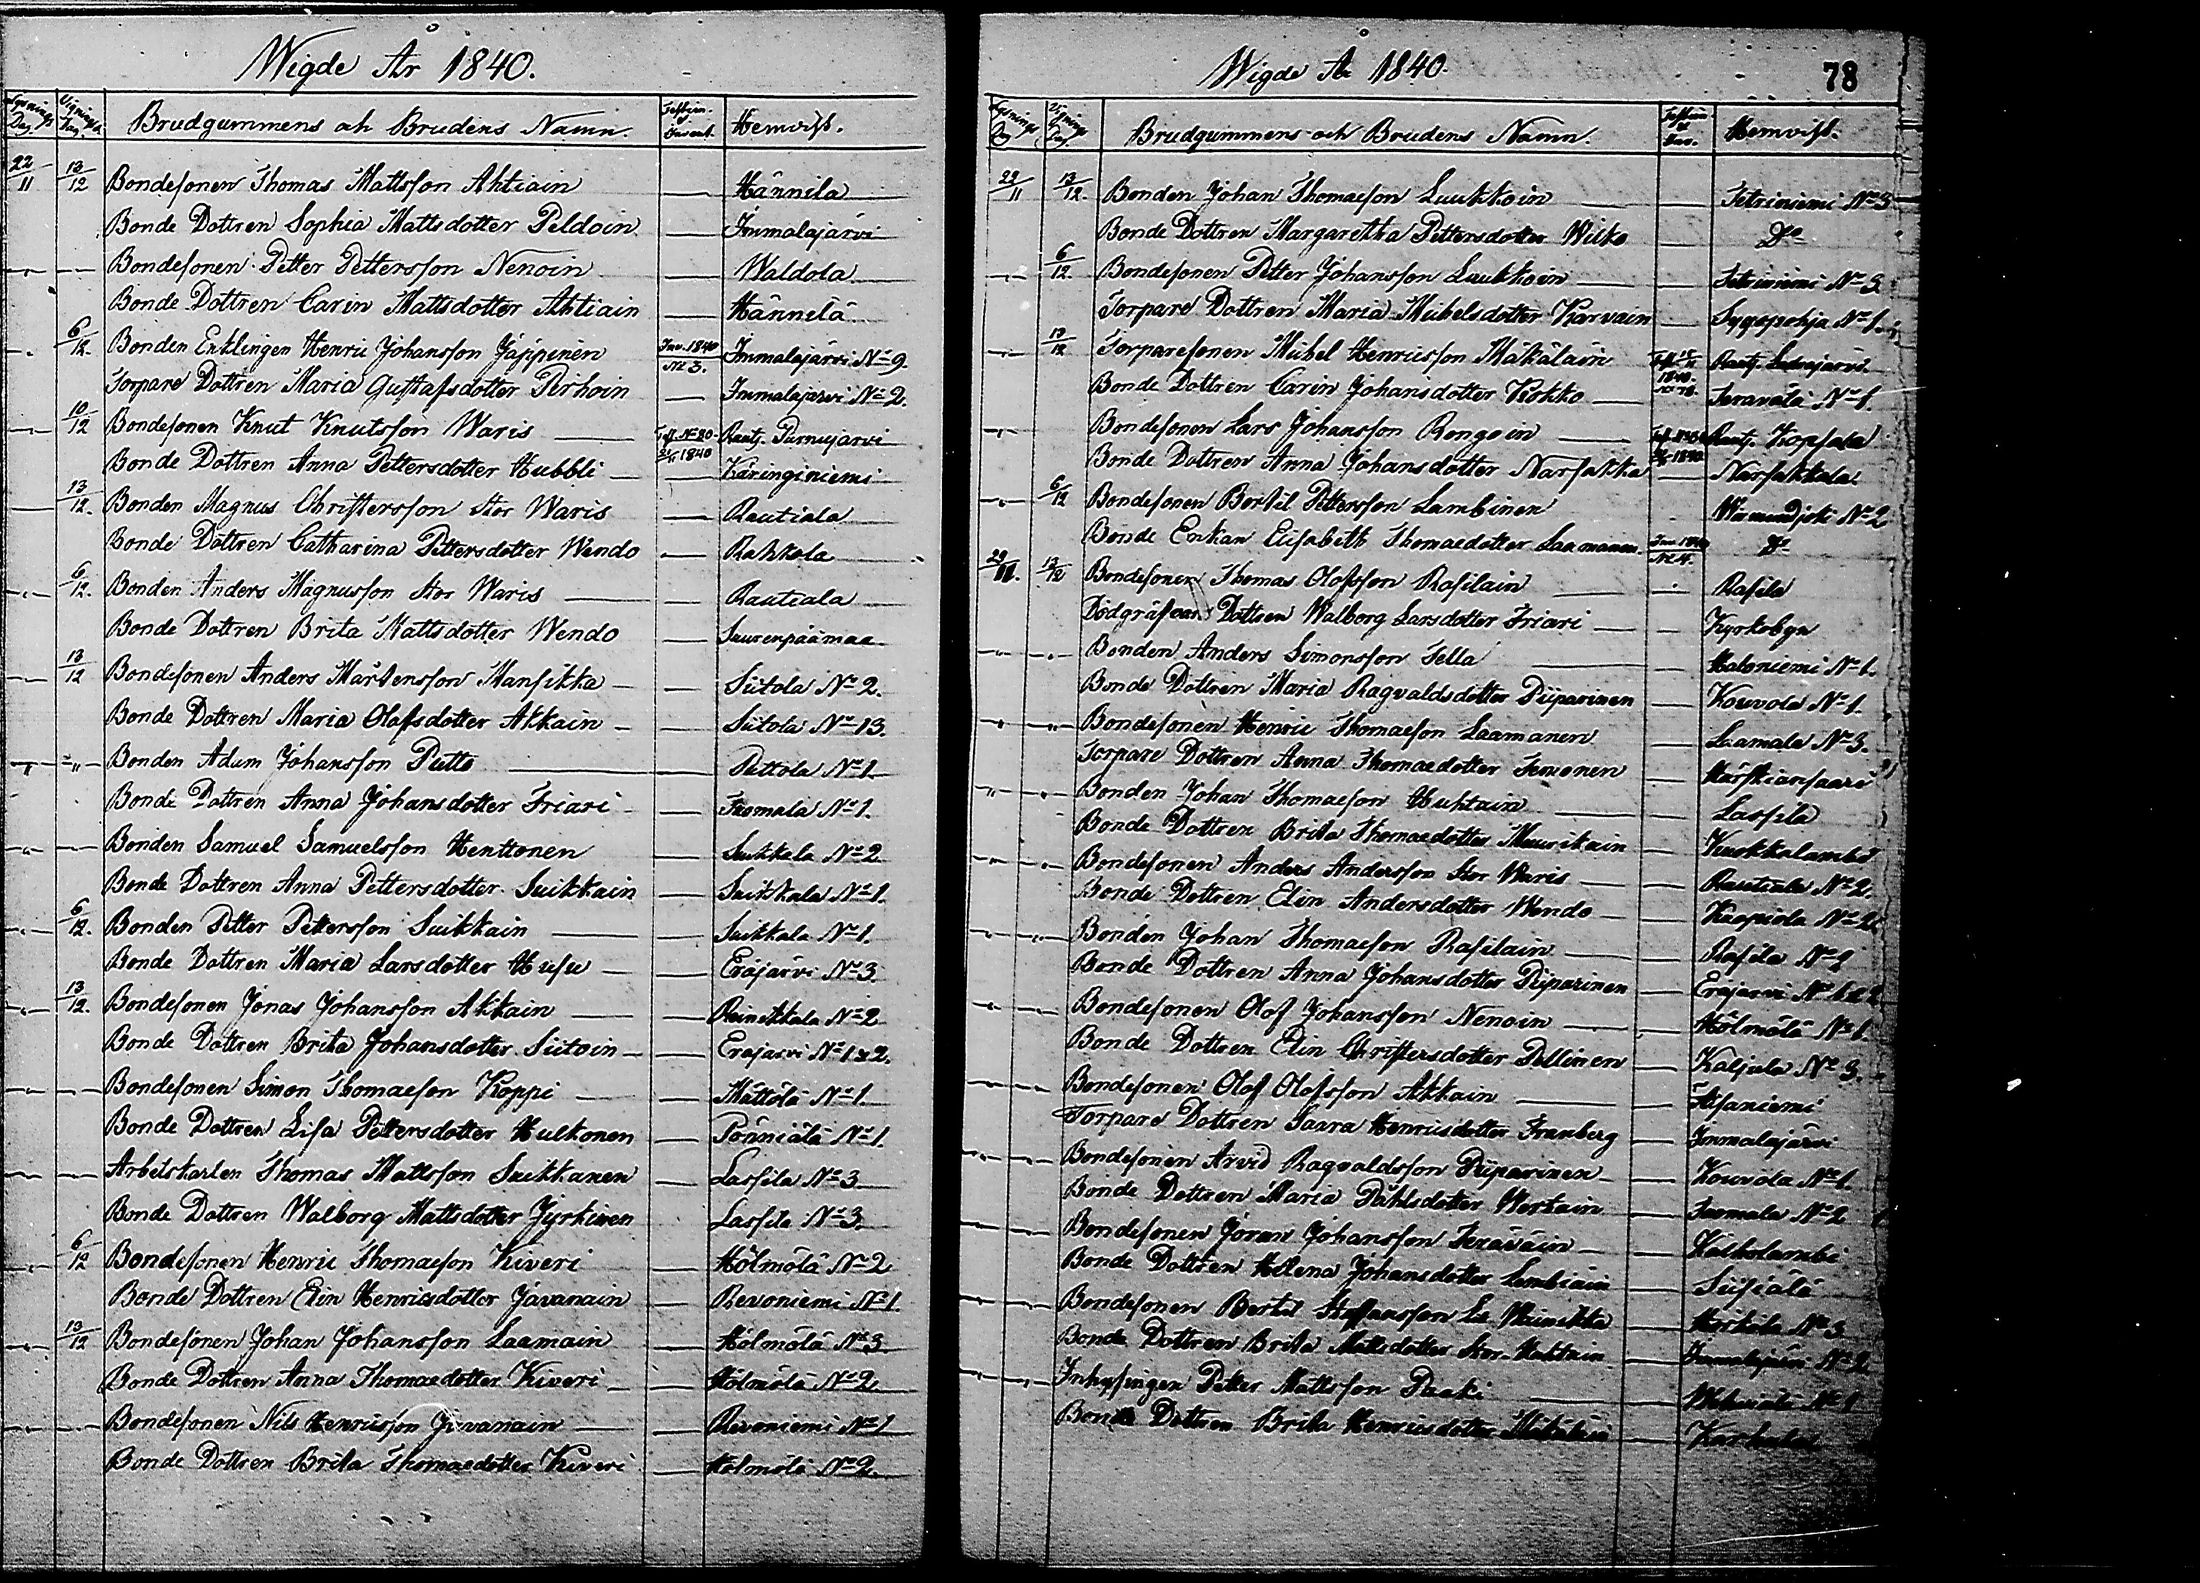 Wigde År 1840.
Lysnings Dag. Vignings Dag. Brudgummens och Brudens Namn. Hemvist.
22/11 13/12 Bondesonen Thomas Mattsson Ahtiain — Hännilä
Bonde Dottren Sophia Mattsdotter Peldoin — Immalajärvi
-"- — Bondesonen Petter Pettersson Nenoin — Waldola
Bonde Dottren Carin Mattsdotter Ahtiain — Hännilä
-"- 6/12. Bonden Enklingen Henric Johansson Jäppinen Inv. 1840 No 3. Immalajärvi No 9.
Torpare Dottren Maria Gustafsdotter Pirhoin — Immalajärvi No 2.
-"- 10/12 Bondesonen Knut Knutsson Waris — No 20 1840 Rautj. Purnujärvi
Bonde Dottren Anna Pettersdotter Hubbli — Käringiniemi
— 13/12. Bonden Magnus Christersson Stor Waris — Rautiala
Bonde Dottren Catharina Pettersdotter Wendo — Rahkola
-"- 6/12. Bonden Anders Magnusson Stor Waris — Rautiala
Bonde Dottren Brita Mattsdotter Wendo — Suurenpäämaa
— 13/12 Bondesonen Anders Mårtensson Mansikka — Siitola No 2.
Bonde Dottren Maria Olofsdotter Akkain — Siitola No 13.
-"- -"- Bonden Adam Johansson Putto — Puttola No 1.
Bonde Dottren Anna Johansdotter Friari — Tuomala No 1.
-"- — Bonden Samuel Samuelsson Henttonen — Suikkala No 2
Bonde Dottren Anna Pettersdotter Suikkain — Suikkala No 1.
-"- 6/12. Bonden Petter Pettersson Suikkain — Suikkala No 1.
Bonde Dottren Maria Larsdotter Husu — Eräjärvi No 3.
-"- 13/12. Bondesonen Jonas Johansson Akkain — Reinikkala No 2
Bonde Dottren Brita Johansdotter Siitoin — Eräjärvi No 1 & 2.
— — Bondesonen Simon Thomaeson Koppi — Mattölä No 1.
Bonde Dottren Lisa Pettersdotter Hulkonen — Pönniälä No 1.
— — Arbetskarlen Thomas Mattsson Suikkanen — Lassila No 3
Bonde Dottren Walborg Mattsdotter Jyrkinen — Lassila No 3.
-"- 6/12 Bondesonen Henric Thomaeson Kiveri — Hölmölä No 2
Bonde Dottren Elin Henricsdotter Jävanain — Revoniemi No 1
-"- 13/12 Bondesonen Johan Johansson Laamain — Hölmölä No 3
Bonde Dottren Anna Thomaedotter Kiveri — Hölmölä No 2
-"- — Bondesonen Nils Henricsson Jävanain — Revoniemi No 1
Bonde Dottren Brita Thomaedotter Kiveri — Hölmölä No 2.
Wigde År 1840. 78
Lysnings Dag Vignings Dag. Brudgummens och Brudens Namn. Hemvist.
22/11 13/12. Bonden Johan Thomaeson Luukkoin — Tetriniemi No 3
Bonde Dottren Margaretha Pettersdotter Wilko — Do
-"- 6/12 Bondesonen Petter Johansson Luukkoin — Tetriniemi No 3
Torpare Dottren Maria Mickelsdotter Karvain — Syyspohja No 1.
-"- 13/12 Torparesonen Mickel Henricsson Mäkäläin 1840. No 78. Rautj.
Bonde Dottren Carin Johansdotter Kokko — Terävälä No 1.
-"- Bondesonen Lars Johansson Rongoin — 1840 Rautj. Kopsala
Bonde Dottren Anna Johansdotter Narsakka — Narsakkala
-"- 6/12 Bondesonen Bertil Pettersson Lambinen No 2
Bonde Enkan Elisabeth Thomaedotter Laamanen Inv. 1840 No 4. Do
29/11. 13/12 Bondesonen Thomas Olofsson Rasilain — Rasila
Dödgräfvare Dottren Walborg Larsdotter Friari — Kyrkobyn
-"- -"- Bonden Anders Simonsson Tella — Haloniemi No 1.
Bonde Dottren Maria Ragvaldsdotter Piiparinen — Kouvola No 1.
-"- -"- Bondesonen Henric Thomaeson Laamanen — Laamala No 3.
Torpare Dottren Anna Thomaedotter Temonen — Härskiansaari
-"- -"- Bonden Johan Thomaeson Huhtain — Lassila
Bonde Dottren Brita Thomaedotter Muurikain — Kuokkalambi
-"- -"- Bondesonen Anders Andersson Stor Waris — Rautiala No 2.
Bonde Dottren Elin Andersdotter Wendo — Kuopiola No 2.
-"- -"- Bonden Johan Thomaeson Rasilain — Rasila No 2
Bonde Dottren Anna Johansdotter Piiparinen — Eräjärvi No 1 & 2
-"- -"- Bondesonen Olof Johansson Nenoin — Hölmölä No 1.
Bonde Dottren Elin Christersdotter Pellinen — Kaljula No 3.
-"- -"- Bondesonen Olof Olofsson Akkain — Äitsaniemi
Torpare Dottren Saara Henricsdotter Franberg — Immalajärvi
-"- -"- Bondesonen Arvid Ragvaldsson Piiparinen — Kouvola No 1.
Bonde Dottren Maria Påhlsdotter Werkain — Tuomala No 2
-"- -"- Bondesonen Jöran Johansson Teräväin — Kalholambi
Bonde Dottren Helena Johansdotter Lembiäin — Siisiälä
-"- -"- Bondesonen Bertil Staffansson — Korkola No 3
Bonde Dottren Brita Mattsdotter Stor — Immalajärvi No 2
-"- -"- Inhysingen Petter Mattsson Paaki — No 1
Bonde Dottren Brita Henricsdotter Mäkäläin — Karhula